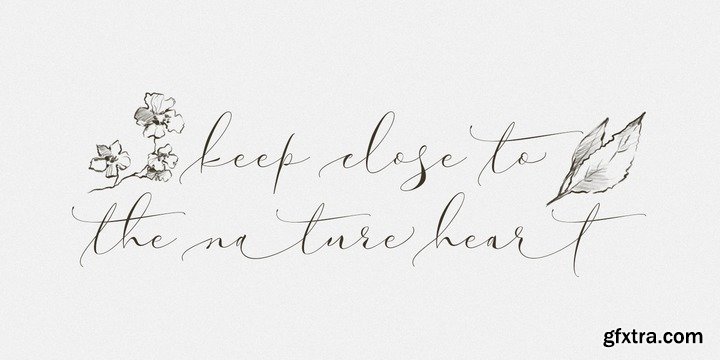 keep close to
the nature heart
gfxtra.com